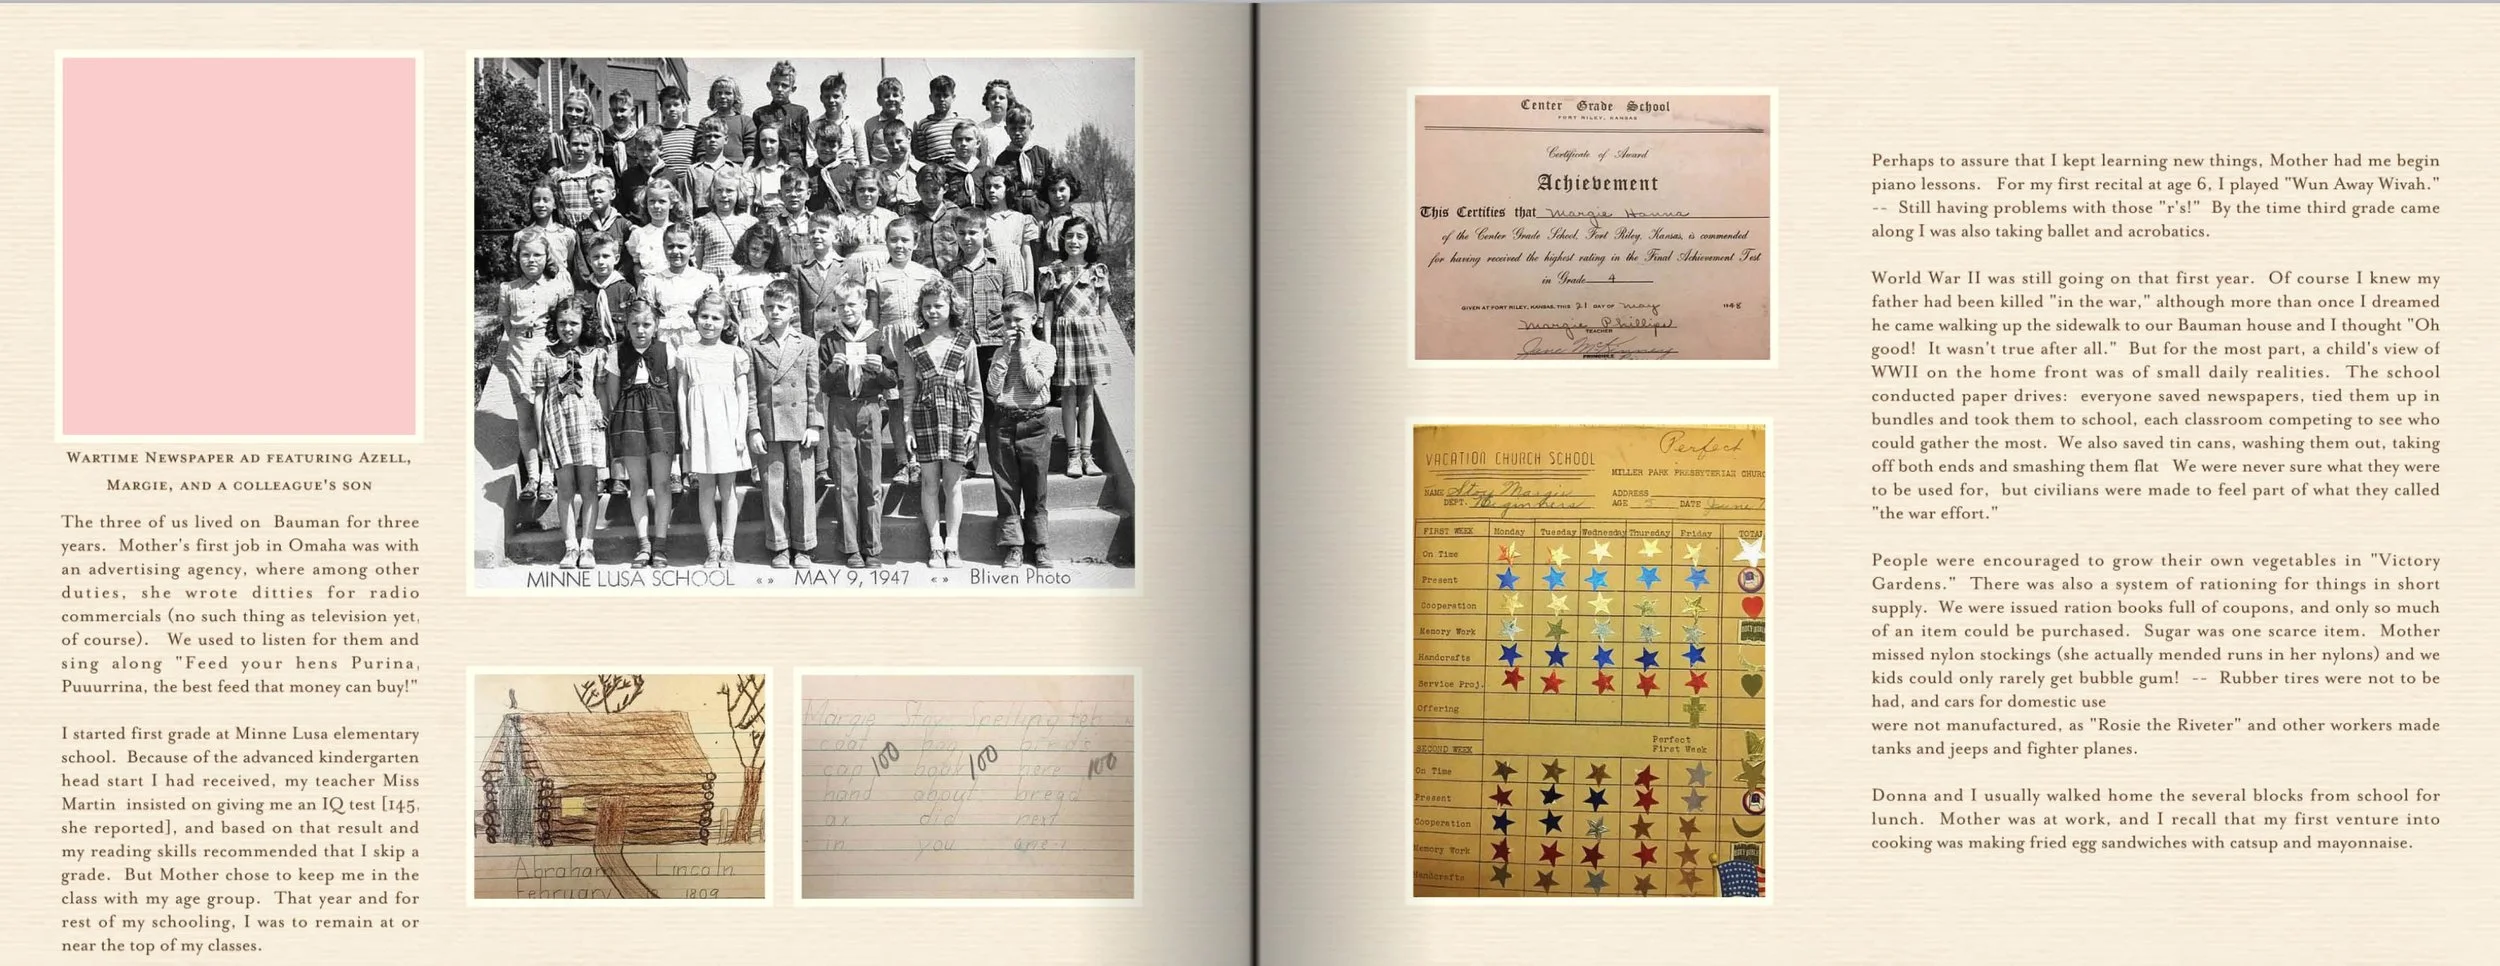 Wartime Newspaper ad featuring Azell,
Margie, and a colleague's son
The three of us lived on Bauman for three
years. Mother's first job in Omaha was with
an advertising agency, where among other
duties, she wrote ditties for radio
commercials (no such thing as television yet,
of course). We used to listen for them and
sing along "Feed your hens Purina,
Puuurrina, the best feed that money can buy!"
I started first grade at Minne Lusa elementary
school. Because of the advanced kindergarten
head start I had received, my teacher Miss
Martin insisted on giving me an IQ test [145,
she reported], and based on that result and
my reading skills recommended that I skip a
grade. But Mother chose to keep me in the
class with my age group. That year and for
rest of my schooling, I was to remain at or
near the top of my classes.
MINNE LUSA SCHOOL «» MAY 9, 1947 «» Bliven Photo
Abraham Lincoln
February 1809
Margie Stoy Spelling Feb
coat
cap 100 book 100 here 100
hand about bread
ax did next
in you
Center Grade School
FORT RILEY, KANSAS
Certificate of Award
Achievement
This Certifies that Margie Hanna
of the Center Grade School, Fort Riley, Kansas, is commended
for having received the highest rating in the Final Achievement Test
in Grade 4
GIVEN AT FORT RILEY, KANSAS, THIS 21 DAY OF May 1948
Margie Phillips
TEACHER
Jane McKinney
PRINCIPAL
Perfect
VACATION CHURCH SCHOOL
MILLER PARK PRESBYTERIAN CHURC
NAME Stoy Margie ADDRESS
DEPT. Beginners AGE 5 DATE June
FIRST WEEK Monday Tuesday Wednesday Thursday Friday TOTAL
On Time
Present
Cooperation
Memory Work
Handcrafts
Service Proj.
Offering
Perfect
SECOND WEEK First Week
On Time
Present
Cooperation
Memory Work
Handcrafts
Perhaps to assure that I kept learning new things, Mother had me begin
piano lessons. For my first recital at age 6, I played "Wun Away Wivah."
-- Still having problems with those "r's!" By the time third grade came
along I was also taking ballet and acrobatics.
World War II was still going on that first year. Of course I knew my
father had been killed "in the war," although more than once I dreamed
he came walking up the sidewalk to our Bauman house and I thought "Oh
good! It wasn't true after all." But for the most part, a child's view of
WWII on the home front was of small daily realities. The school
conducted paper drives: everyone saved newspapers, tied them up in
bundles and took them to school, each classroom competing to see who
could gather the most. We also saved tin cans, washing them out, taking
off both ends and smashing them flat We were never sure what they were
to be used for, but civilians were made to feel part of what they called
"the war effort."
People were encouraged to grow their own vegetables in "Victory
Gardens." There was also a system of rationing for things in short
supply. We were issued ration books full of coupons, and only so much
of an item could be purchased. Sugar was one scarce item. Mother
missed nylon stockings (she actually mended runs in her nylons) and we
kids could only rarely get bubble gum! -- Rubber tires were not to be
had, and cars for domestic use
were not manufactured, as "Rosie the Riveter" and other workers made
tanks and jeeps and fighter planes.
Donna and I usually walked home the several blocks from school for
lunch. Mother was at work, and I recall that my first venture into
cooking was making fried egg sandwiches with catsup and mayonnaise.